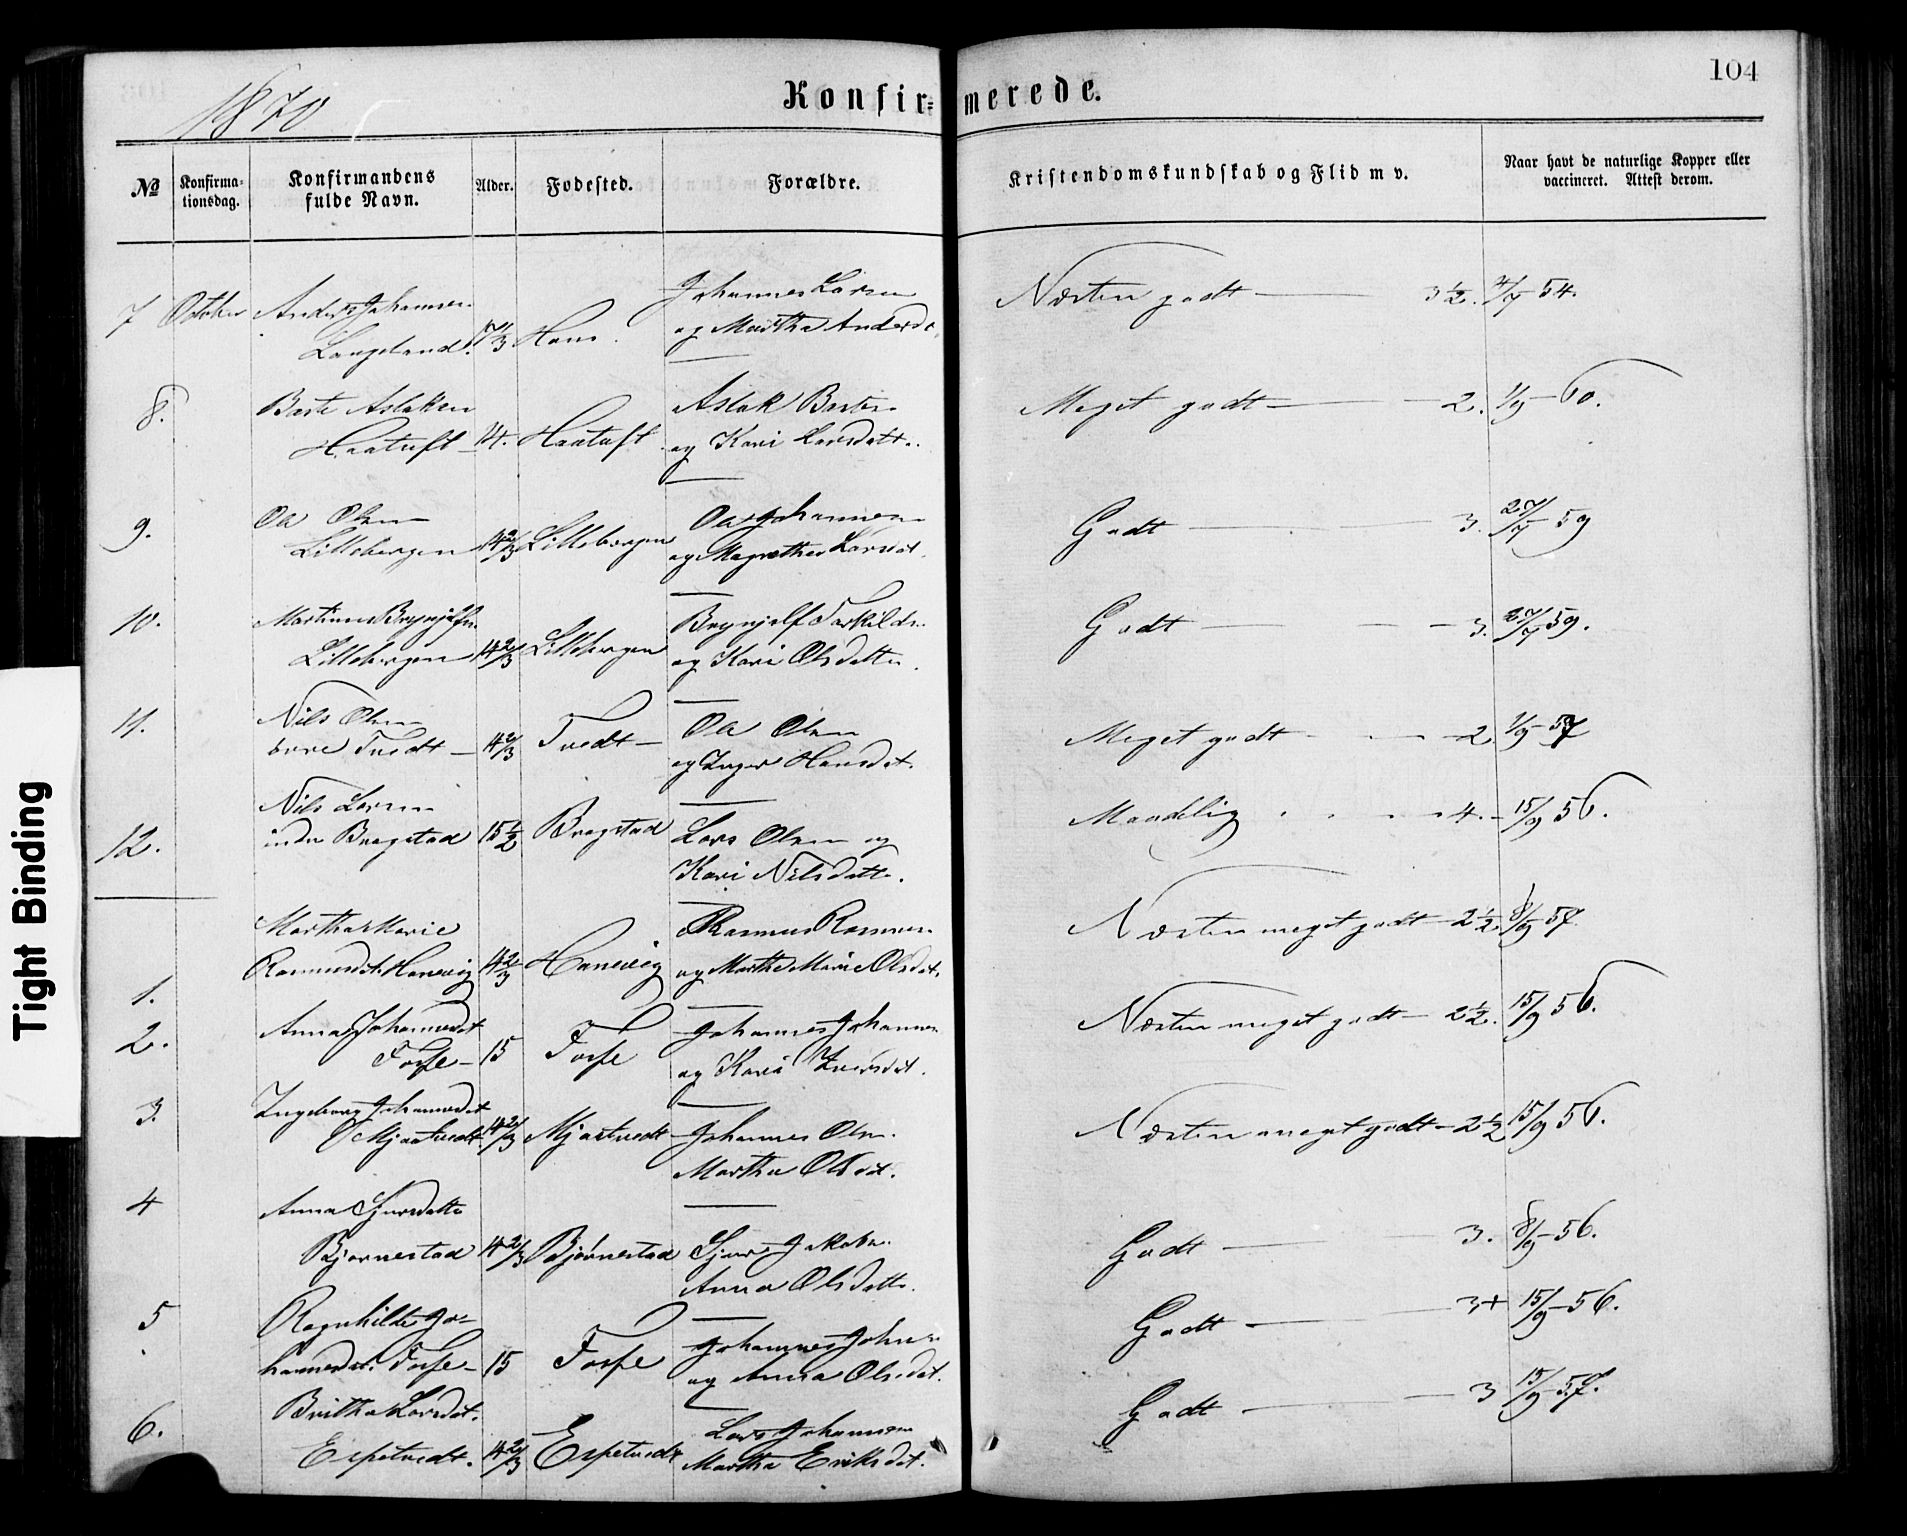 1870
Konfir=
merede.
104
No
Konfirma-
tionsdag.
Konfirmandens
fulde Navn.
Alder.
Fodested.
Forældre.
Kristendomskundskab og Flid m v.
Naar havt de naturlige Kopper eller
vaccineret. Attest derom.
7 October Anders Johannesen
Langeland. Johannes Larsen
og Martha Andersd.
Næsten godt — 3½.
8. Baste Aslaksen
Haatuft 14. Haatuft Aslak Bastes.
og Kari Larsdatt.
Meget godt — 2. 1/9 - 60.
9. Ole Olsen
Lillebergen 14 2/3 Lillebergen Ole Johannesen
og Magrethe Larsdt.
Godt — 3. 27/7 59
10. Martinus Brynjulfsn.
Lillebergen 14 2/3 Lillebergen Brynjulf Torkilds.
og Kari Olsdatter.
Godt — 3. 27/7 59.
11. Nils Olsen
Tvedt 14 2/3 Tvedt Ole Olsen
og Inger Hansdat.
Meget godt — 2 1/9 - 57
12. Nils Larsen
indre Bragstad 15 1/2 Bragstad Lars Olsen og
Kari Nilsdatt.
Maadelig 4. 15/9 56.
1. Martha Marie
Rasmusdt. Hanevig 14 2/3 Hanevig Rasmus Rasmusn.
og Martha Marie Olsdat.
Næsten meget godt 2½ 8/9 - 57.
2. Anna Johannesdt
Fosse 15 Fosse Johannes Johannesn
og Kari Iversdat.
Næsten meget godt 2½. 15/9 56.
3. Ingeborg Johannesdt
Mjaatvedt 14 2/3 Mjaatvedt Johannes Olsn.
Martha Olsdt.
Næsten meget godt 2½ 15/9 56.
4 Anna Sjursdatter
Bjørnestad 14 2/3 Bjørnestad Sjur Jakobn.
Anna Olsdatt.
Godt — 3. 8/9 - 56.
5 Ragnhilde Jo=
hannesdt. Fosse 15 Fosse Johannes Johns.
og Anna Olsdat.
Godt — 3+ 15/9 - 56.
6. Britha Larsdat.
Espetvedt. 14 2/3 Espetvedt Lars Johannesn
Martha Eriksdat.
Godt — 3 15/9 - 57.
Tight Binding